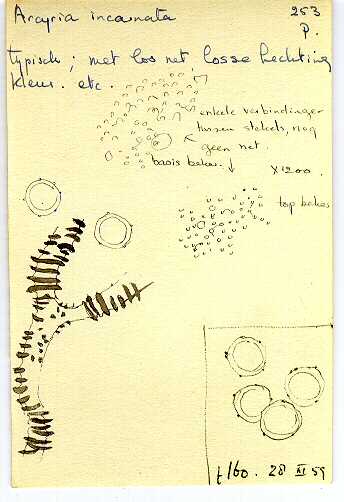 Arcyria incarnata
253
P.
typisch; met los net losse hechting
kleur. etc.
enkele verbindingen
tussen stekels, nog
geen net.
basis beker ↓
x 1200.
top beker
28 XI 59